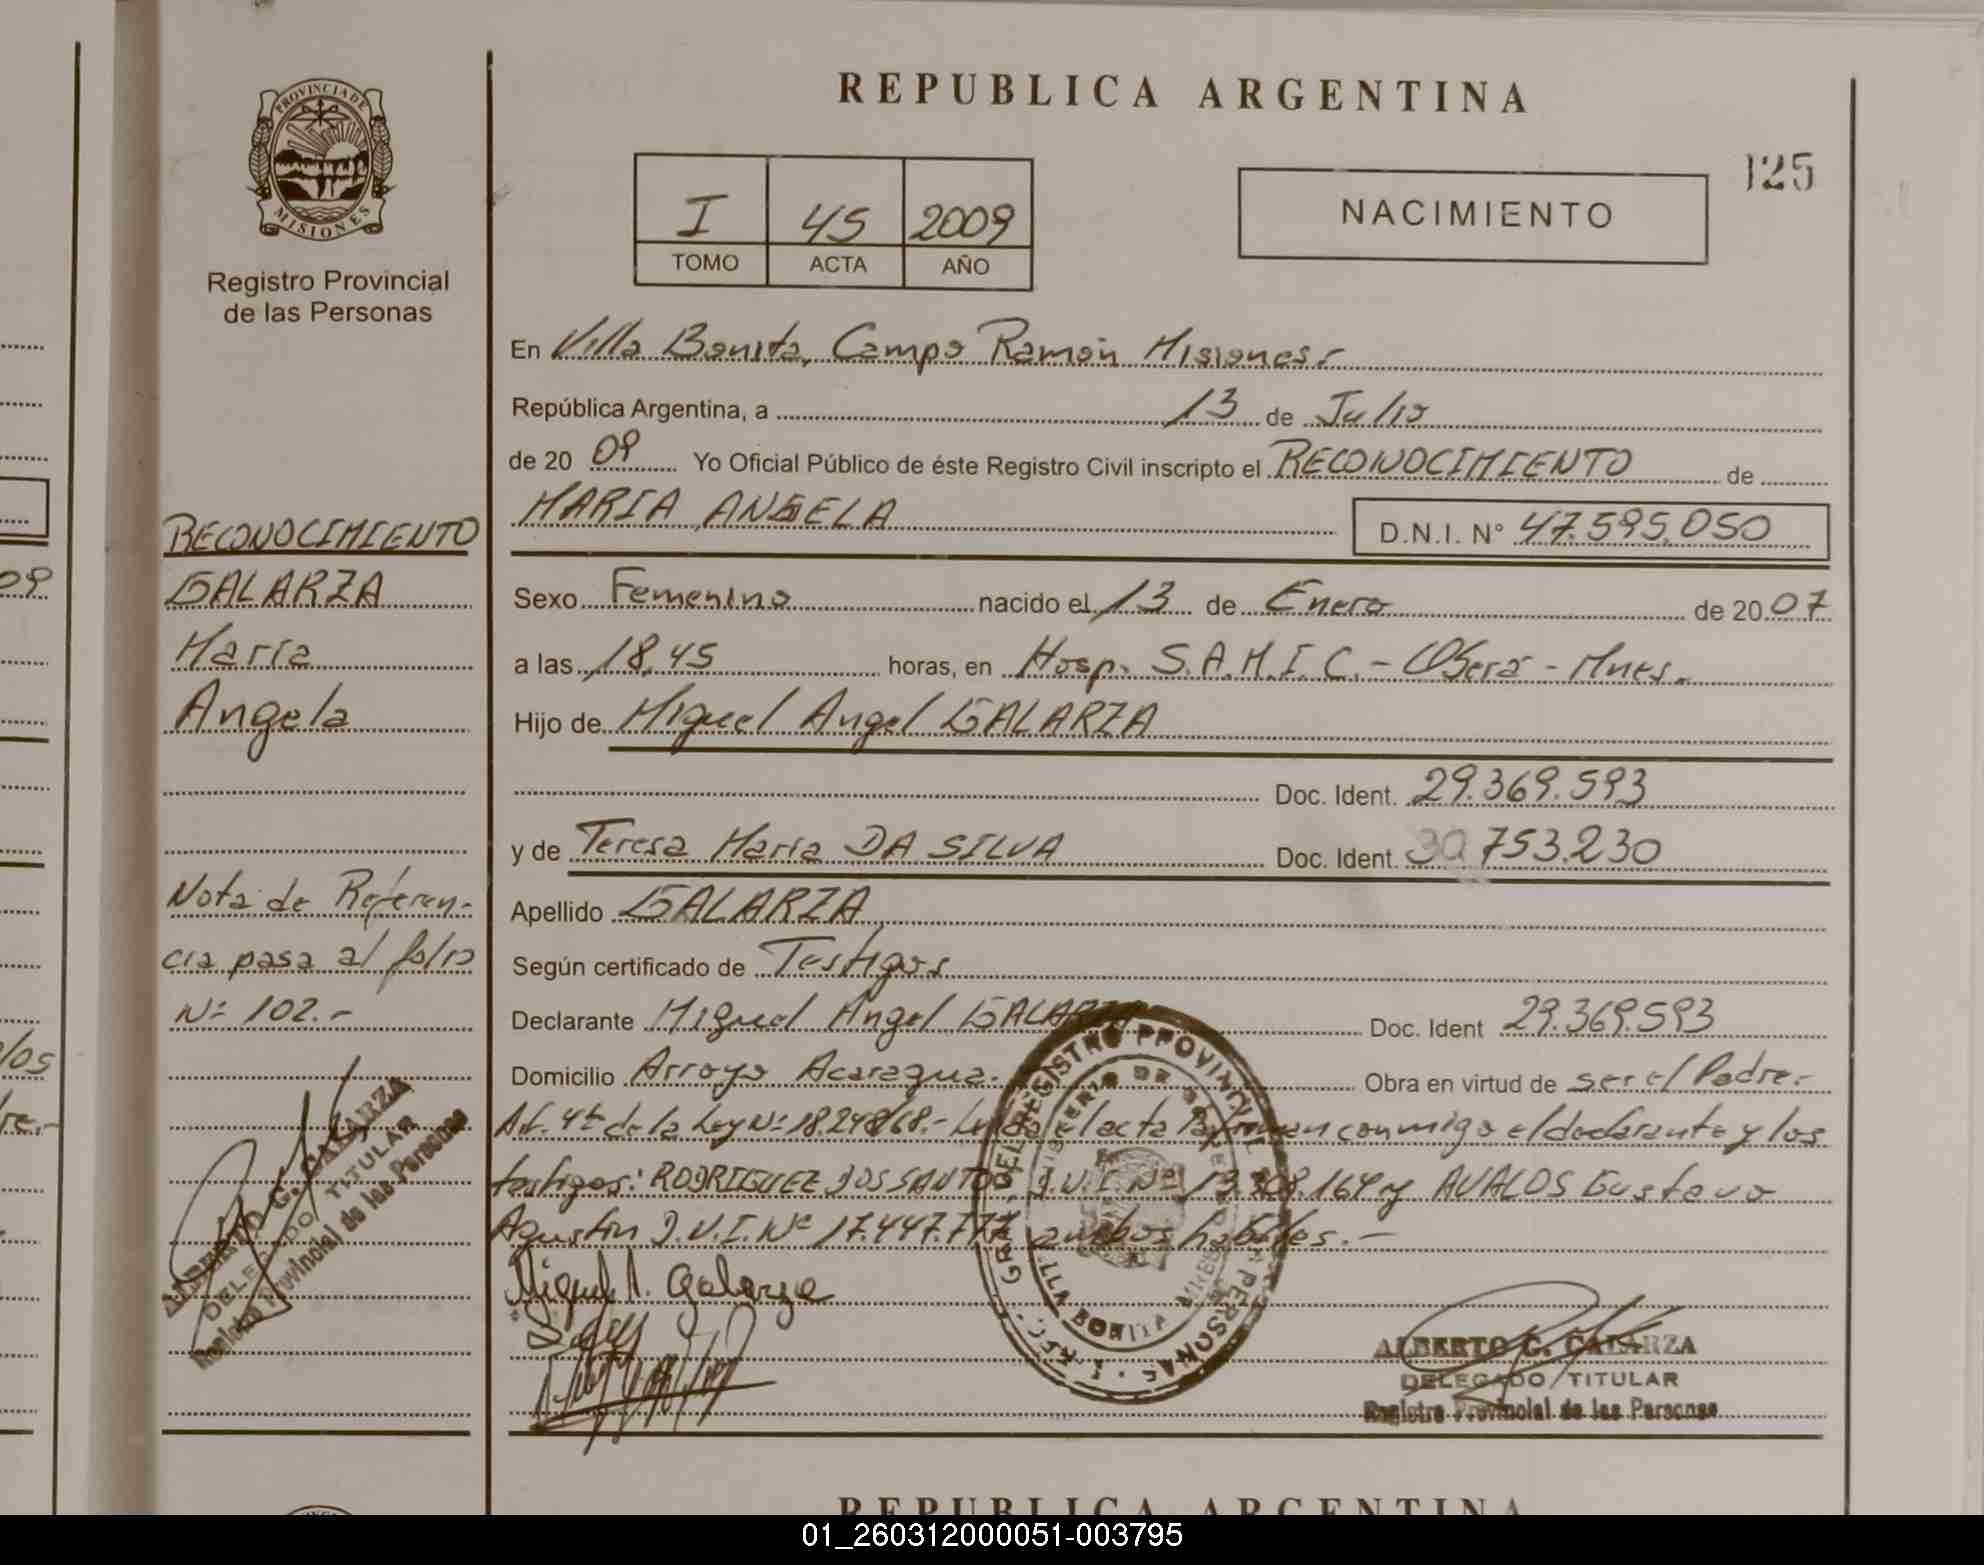 PROVINCIA DE
MISIONES
Registro Provincial
de las Personas
RECONOCIMIENTO
GALARZA
María
Angela
Nota de Referen-
cia pasa al folio
Nº 102.-
ALBERTO G. GALARZA
DELEGADO TITULAR
Registro Provincial de las Personas
REPUBLICA ARGENTINA
125
I 45 2009
TOMO ACTA AÑO
NACIMIENTO
En Villa Bonita, Campo Ramón Misiones.-
República Argentina, a 13 de Julio
de 20 09 Yo Oficial Público de éste Registro Civil inscripto el RECONOCIMIENTO de
MARIA ANGELA D.N.I. N° 47.595.050
Sexo Femenino nacido el 13 de Enero de 20 07
a las 18,45 horas, en Hosp. S.A.M.I.C.- Oberá - Mnes.-
Hijo de Miguel Angel GALARZA
Doc. Ident. 29.369.593
y de Teresa María DA SILVA Doc. Ident. 30.753.230
Apellido GALARZA
Según certificado de Testigos
Declarante Miguel Angel GALARZA Doc. Ident 29.369.593
Domicilio Arroyo Acaragua.- Obra en virtud de ser el Padre.-
Art. 4º de la Ley Nº 18.248/68.- Leída el acta firman conmigo el declarante y los
testigos: RODRIGUEZ DOS SANTOS, D.N.I. Nº 13.208.164 y AVALOS Gustavo
Agustín D.N.I. Nº 17.447.777, ambos hábiles.-
Miguel A. Galarza
REGISTRO PROVINCIAL DE LAS PERSONAS
VILLA BONITA
ALBERTO G. GALARZA
DELEGADO TITULAR
Registro Provincial de las Personas
REPUBLICA ARGENTINA
01_260312000051-003795